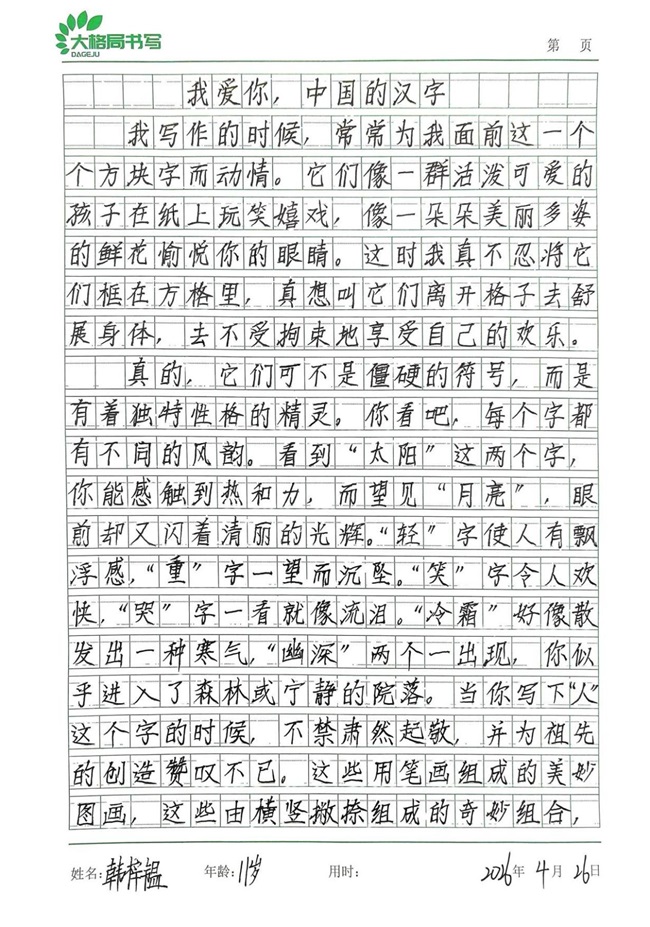 大格局书写
DAGEJU
第 页
我爱你，中国的汉字
我写作的时候，常常为我面前这一个
个方块字而动情。它们像一群活泼可爱的
孩子在纸上玩笑嬉戏，像一朵朵美丽多姿
的鲜花愉悦你的眼睛。这时我真不忍将它
们框在方格里，真想叫它们离开格子去舒
展身体，去不受拘束地享受自己的欢乐。
真的，它们可不是僵硬的符号，而是
有着独特性格的精灵。你看吧，每个字都
有不同的风韵。看到“太阳”这两个字，
你能感触到热和力，而望见“月亮”，眼
前却又闪着清丽的光辉。“轻”字使人有飘
浮感，“重”字一望而沉坠。“笑”字令人欢
快，“哭”字一看就像流泪。“冷霜”好像散
发出一种寒气，“幽深”两个一出现，你似
乎进入了森林或宁静的院落。当你写下“人”
这个字的时候，不禁肃然起敬，并为祖先
的创造赞叹不已。这些用笔画组成的美妙
图画，这些由横竖撇捺组成的奇妙组合，
姓名：韩梓锟 年龄：11岁 用时： 2026年4月26日